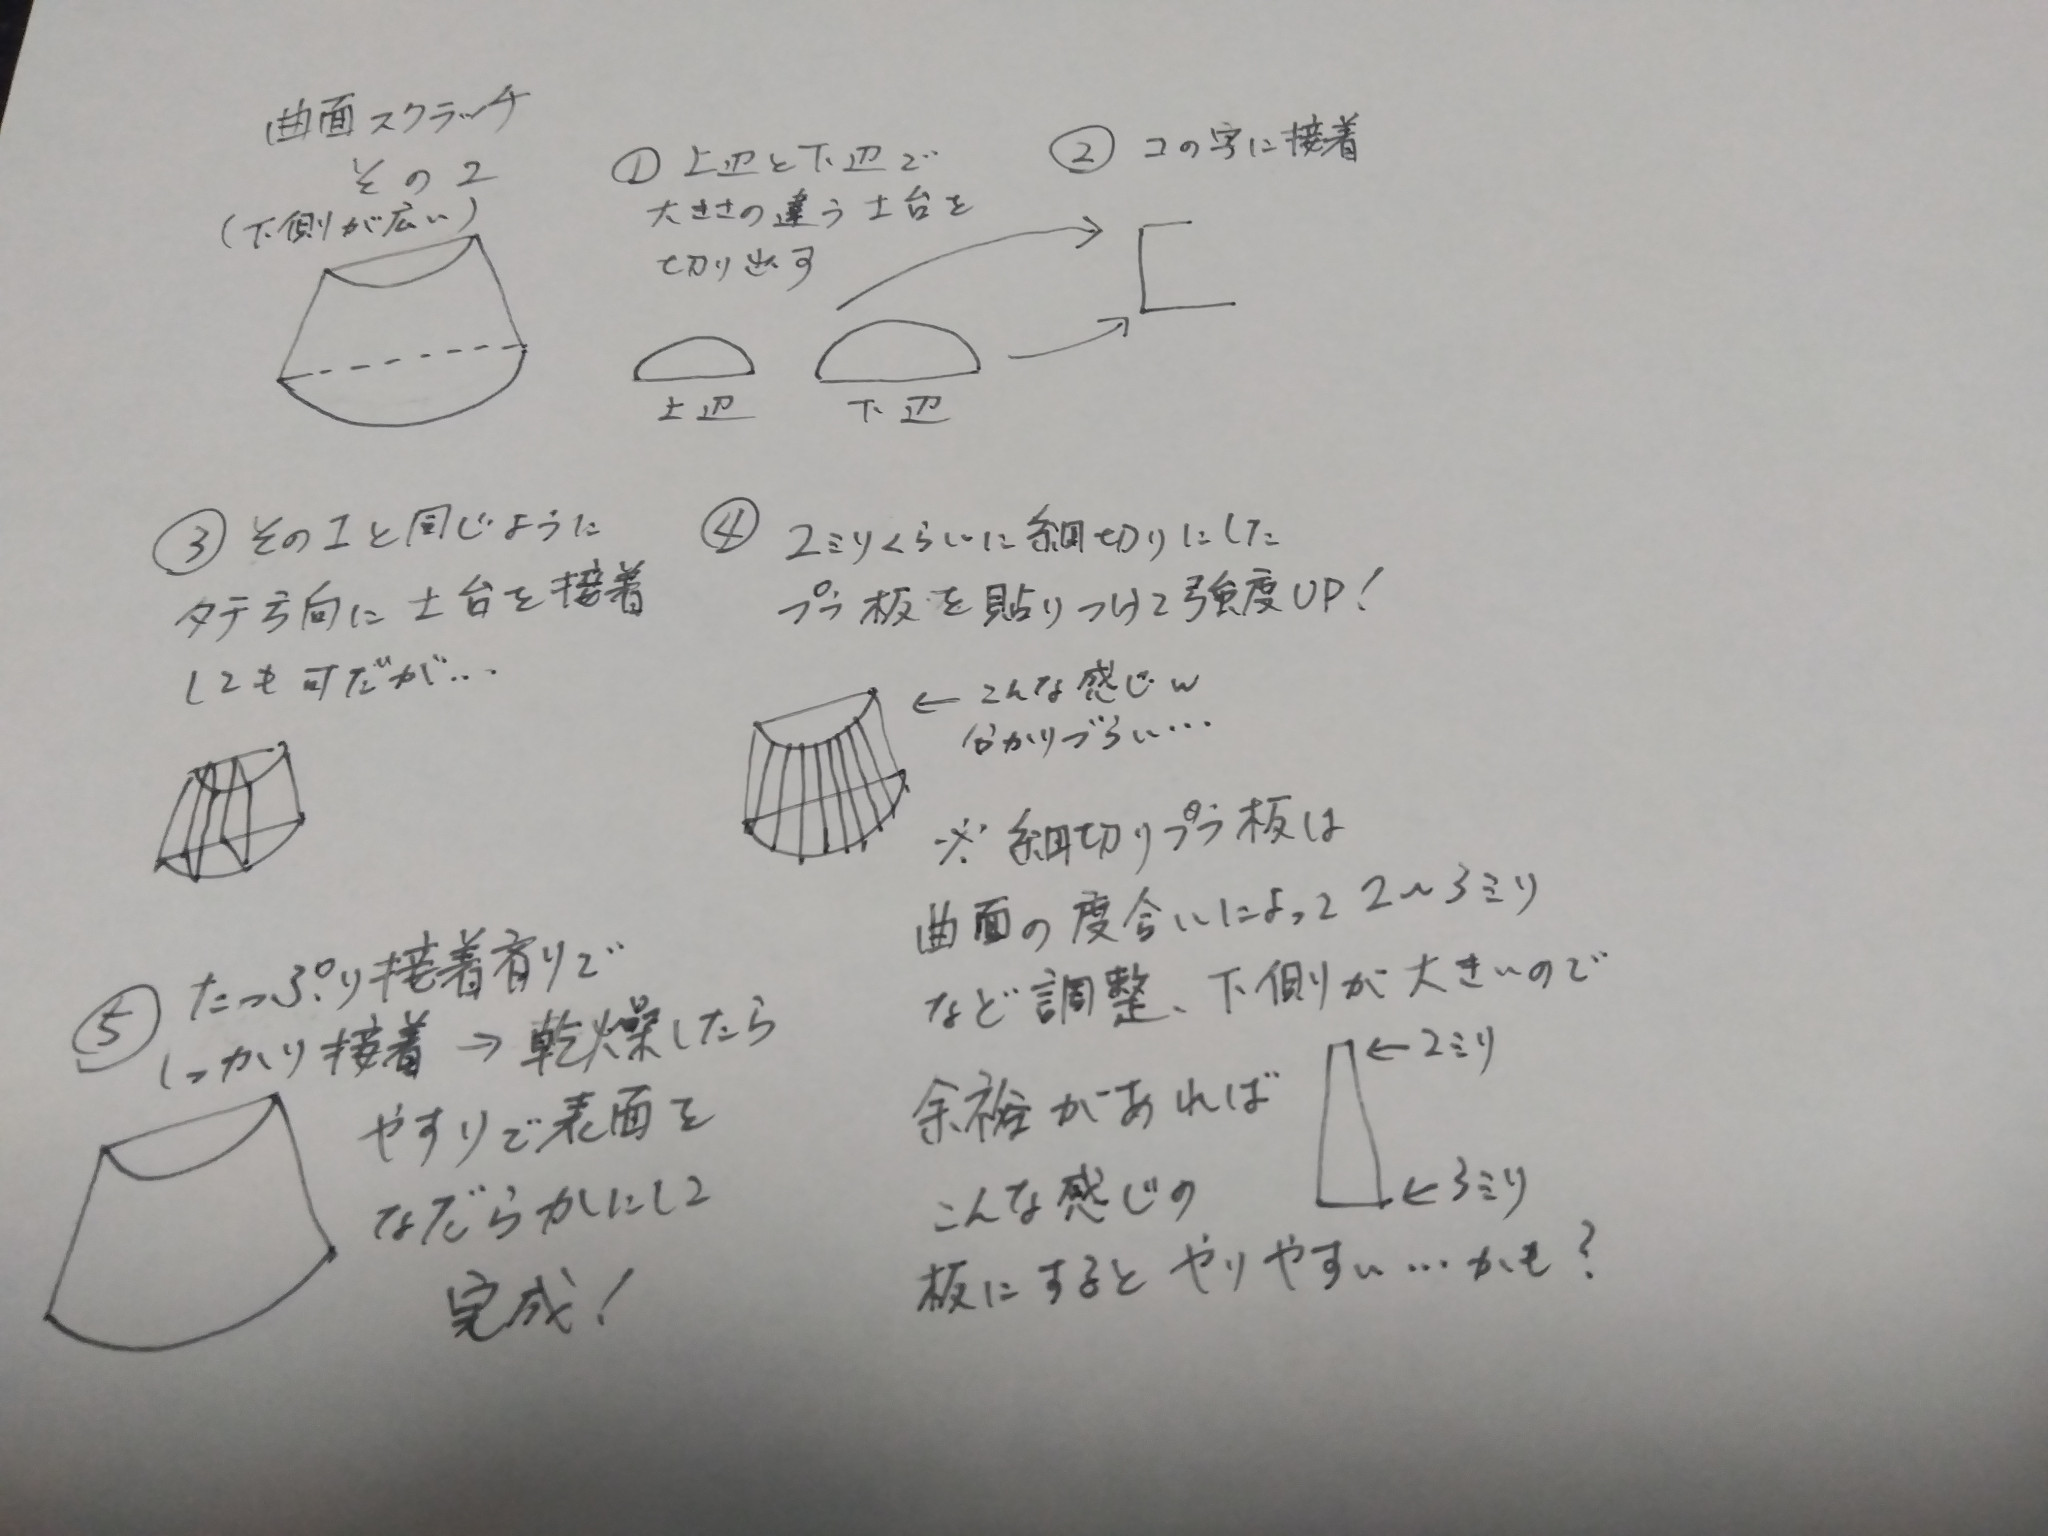 曲面スクラッチ
その2
(下側が広い)
① 上辺と下辺で
大きさの違う土台を
切り出す
上辺
下辺
② コの字に接着
③ その1と同じように
タテ方向に土台を接着
しても可だが…
④ 2ミリくらいに細切りにした
プラ板を貼りつけて強度UP!
←こんな感じw
分かりづらい…
※細切りプラ板は
曲面の度合いによって2〜3ミリ
など調整、下側が大きいので
余裕があれば
こんな感じの
板にするとやりやすい…かも?
←2ミリ
←3ミリ
⑤ たっぷり接着有りで
しっかり接着→乾燥したら
やすりで表面を
なだらかにして
完成!